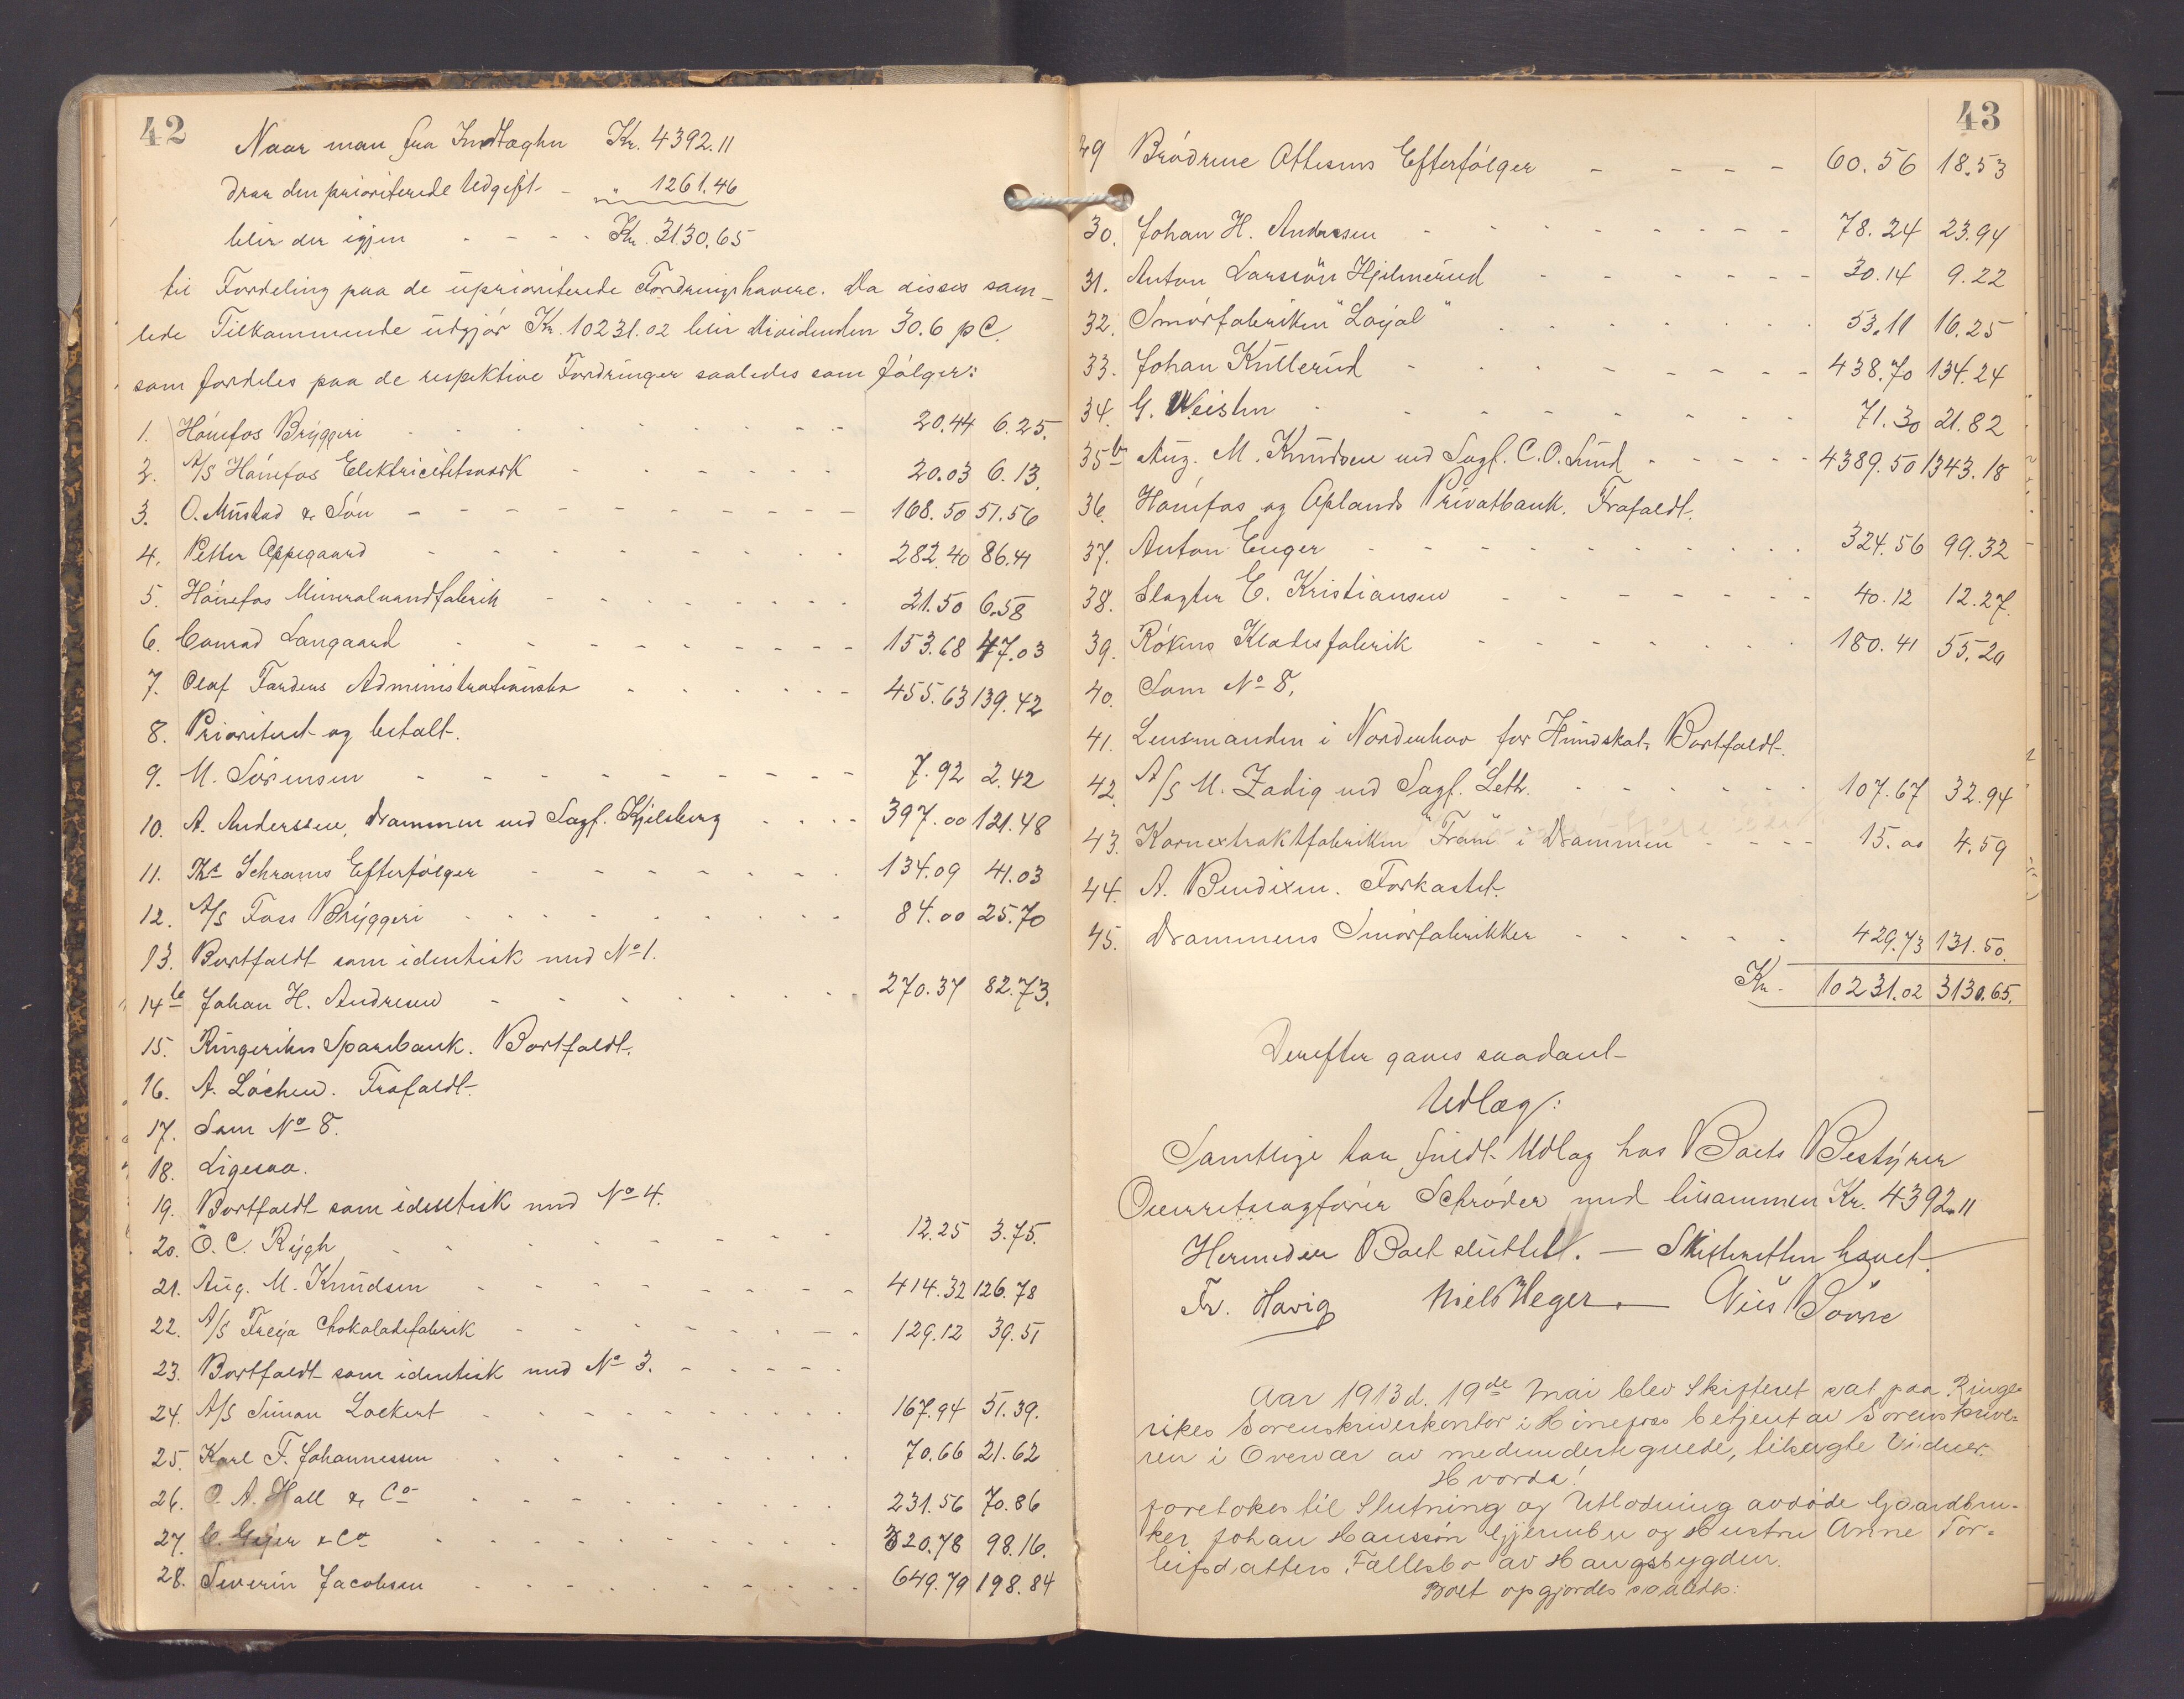 42
Naar man fra Indtægten Kr. 4392.11
drar den prioriterede Udgift - " 1261.46
blir der igjen - - - - Kr. 3130.65
til Fordeling paa de uprioriterede Fordringshavere. Da disses sam-
lede Tilkommende udgjør Kr. 10231.02 blir Dividenden 30.6 pC.
som fordeles paa de respektive Fordringer saaledes som følger:
1. Hønefos Bryggeri 20.44 6.25.
2. A/S Hønefos Elektricitetsverk 20.03 6.13.
3. O. Mustad & Søn 168.50 51.56
4. Petter Oppegaard 282.40 86.41
5. Hønefos Mineralvandfabrik 21.50 6.58
6. Conrad Langaard 153.68 47.03
7. Olaf Tandens Administrationsbo 455.63 139.42
8. Prioritert og betalt.
9. M. Sørensen 7.92 2.42
10. A. Anderssen, Drammen ved Sagf. Kjelsberg 397.00 121.48
11. Ths Schrams Efterfølger 134.09 41.03
12. A/S Foss Bryggeri 84.00 25.70
13. Bortfaldt som identisk med No 1.
14 b Johan H. Andresen 270.37 82.73.
15. Ringerikes Sparebank. Bortfaldt.
16. A. Løchen. Frafaldt.
17. Som No 8.
18. Ligesaa.
19. Bortfaldt som identisk med No 4.
20. O. C. Rygh 12.25 3.75.
21. Aug. M. Knudsen 414.32 126.78
22. A/S Freya Chokoladefabrik 129.12 39.51
23. Bortfaldt som identisk med No 3.
24. A/S Simon Lockert 167.94 51.39.
25. Karl F. Johannessen 70.66 21.62
26. O. A. Hall & Co 231.56 70.86
27. C. Geijer & Co 320.78 98.16.
28. Severin Jacobsen 649.79 198.84
43
29 Brødrene Ottesens Efterfølger 60.56 18.53
30. Johan H. Andresen 78.24 23.94
31. Anton Larssøn Hjelmerud 30.14 9.22
32. Smørfabriken "Loyal" 53.11 16.25
33. Johan Kullerud 438.70 134.24
34. G. Weisten 71.30 21.82
35 b Aug. M. Knudsen ved Sagf. C. O. Lund 4389.50 1343.18
36. Hønefos og Oplands Privatbank. Frafaldt.
37. Anton Enger 324.56 99.32
38. Slagter E. Kristiansen 40.12 12.27.
39. Røkens Kladesfabrik 180.41 55.20
40. Som No 8.
41. Lensmanden i Norderhov for Hundskat. Bortfaldt.
42. A/S M. Zadig ved Sagf. Leth. 107.67 32.94
43. Kornextraktfabriken "Fram" i Drammen 15.00 4.59
44. A. Bendixen. Forkastet.
45. Drammens Smørfabrikker 429.73 131.50.
Kr. 10231.02 3130.65.
Derefter gaves saadant
Udlæg:
Samtlige har fuldt Udlæg hos Boets Bestyrer
Overretssagfører Schrøder med tilsammen Kr. 4392.11
Hermed er Boet sluttet. — Skifteretten hævet.
Fr. Havig Niels Heger. — Nils Boure
Aar 1913 d. 19de Mai blev Skifteret sat paa Ringe-
rikes Sorenskriverkontor i Hønefoss betjent av Sorenskrive-
ren i Overvær av medundertegnede, tilsagte Vidner.
Hvorda!
foretokes til Slutning og Utlodning avdøde Gaardbru-
ker Johan Hanssøn Gjermbu og Hustru Anne Tor-
leifsdatters Fællesbo av Haugsbygden.
Boet opgjordes saaledes: